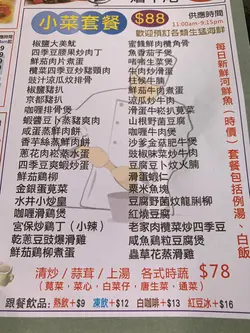 小菜套餐 $88
供應時間
11:00am-9:15pm
歡迎預訂各類生猛海鮮
椒鹽大美魷
四季豆腰果炒肉丁
鮮茄肉片煮蛋
欖菜四季豆炒豬頸肉
豉汁涼瓜炆排骨
椒鹽豬扒
京都豬扒
咖哩排骨煲
蝦醬豆卜蒸豬爽肉
咸蛋蒸鮮肉餅
香芋絲蒸鮮肉餅
蔥花肉崧蒸水蛋
四季豆爽蝦炒蛋
鮮茄鵝柳
金銀蛋莧菜
水井小炒皇
咖喱滑鷄煲
宮保炒鷄丁（小辣）
乾蔥豆豉爆滑鷄
鮮茄鷄柳煮蛋
蜜餞鮮肉欖角骨
魚香茄子煲
啫啫生菜煲
牛肉炒滑蛋
枝竹羊腩煲
滑蛋牛崧扒莧菜
山根野菌豆腐
咖喱牛肉煲
鮮茄牛肉煮蛋
豆腐豆卜炆火腩
沙爹金菇肥牛煲
豉椒味菜炒牛肉
滑蛋蝦仁
粟米魚塊
豆腐野菌炆龍脷柳
紅燒豆腐
老家肉欖菜炒四季豆
咸魚鷄粒豆腐煲
蟲草花蒸滑鷄
每日新鮮河鮮魚（時價）套餐包括例湯、白飯
清炒／蒜茸／上湯 各式時蔬 $78
（莧菜、菜心、白菜仔、唐生菜、通菜）
跟餐飲品： 熱飲+$9 凍飲+$12 白咖啡+$13 紅豆冰+$16